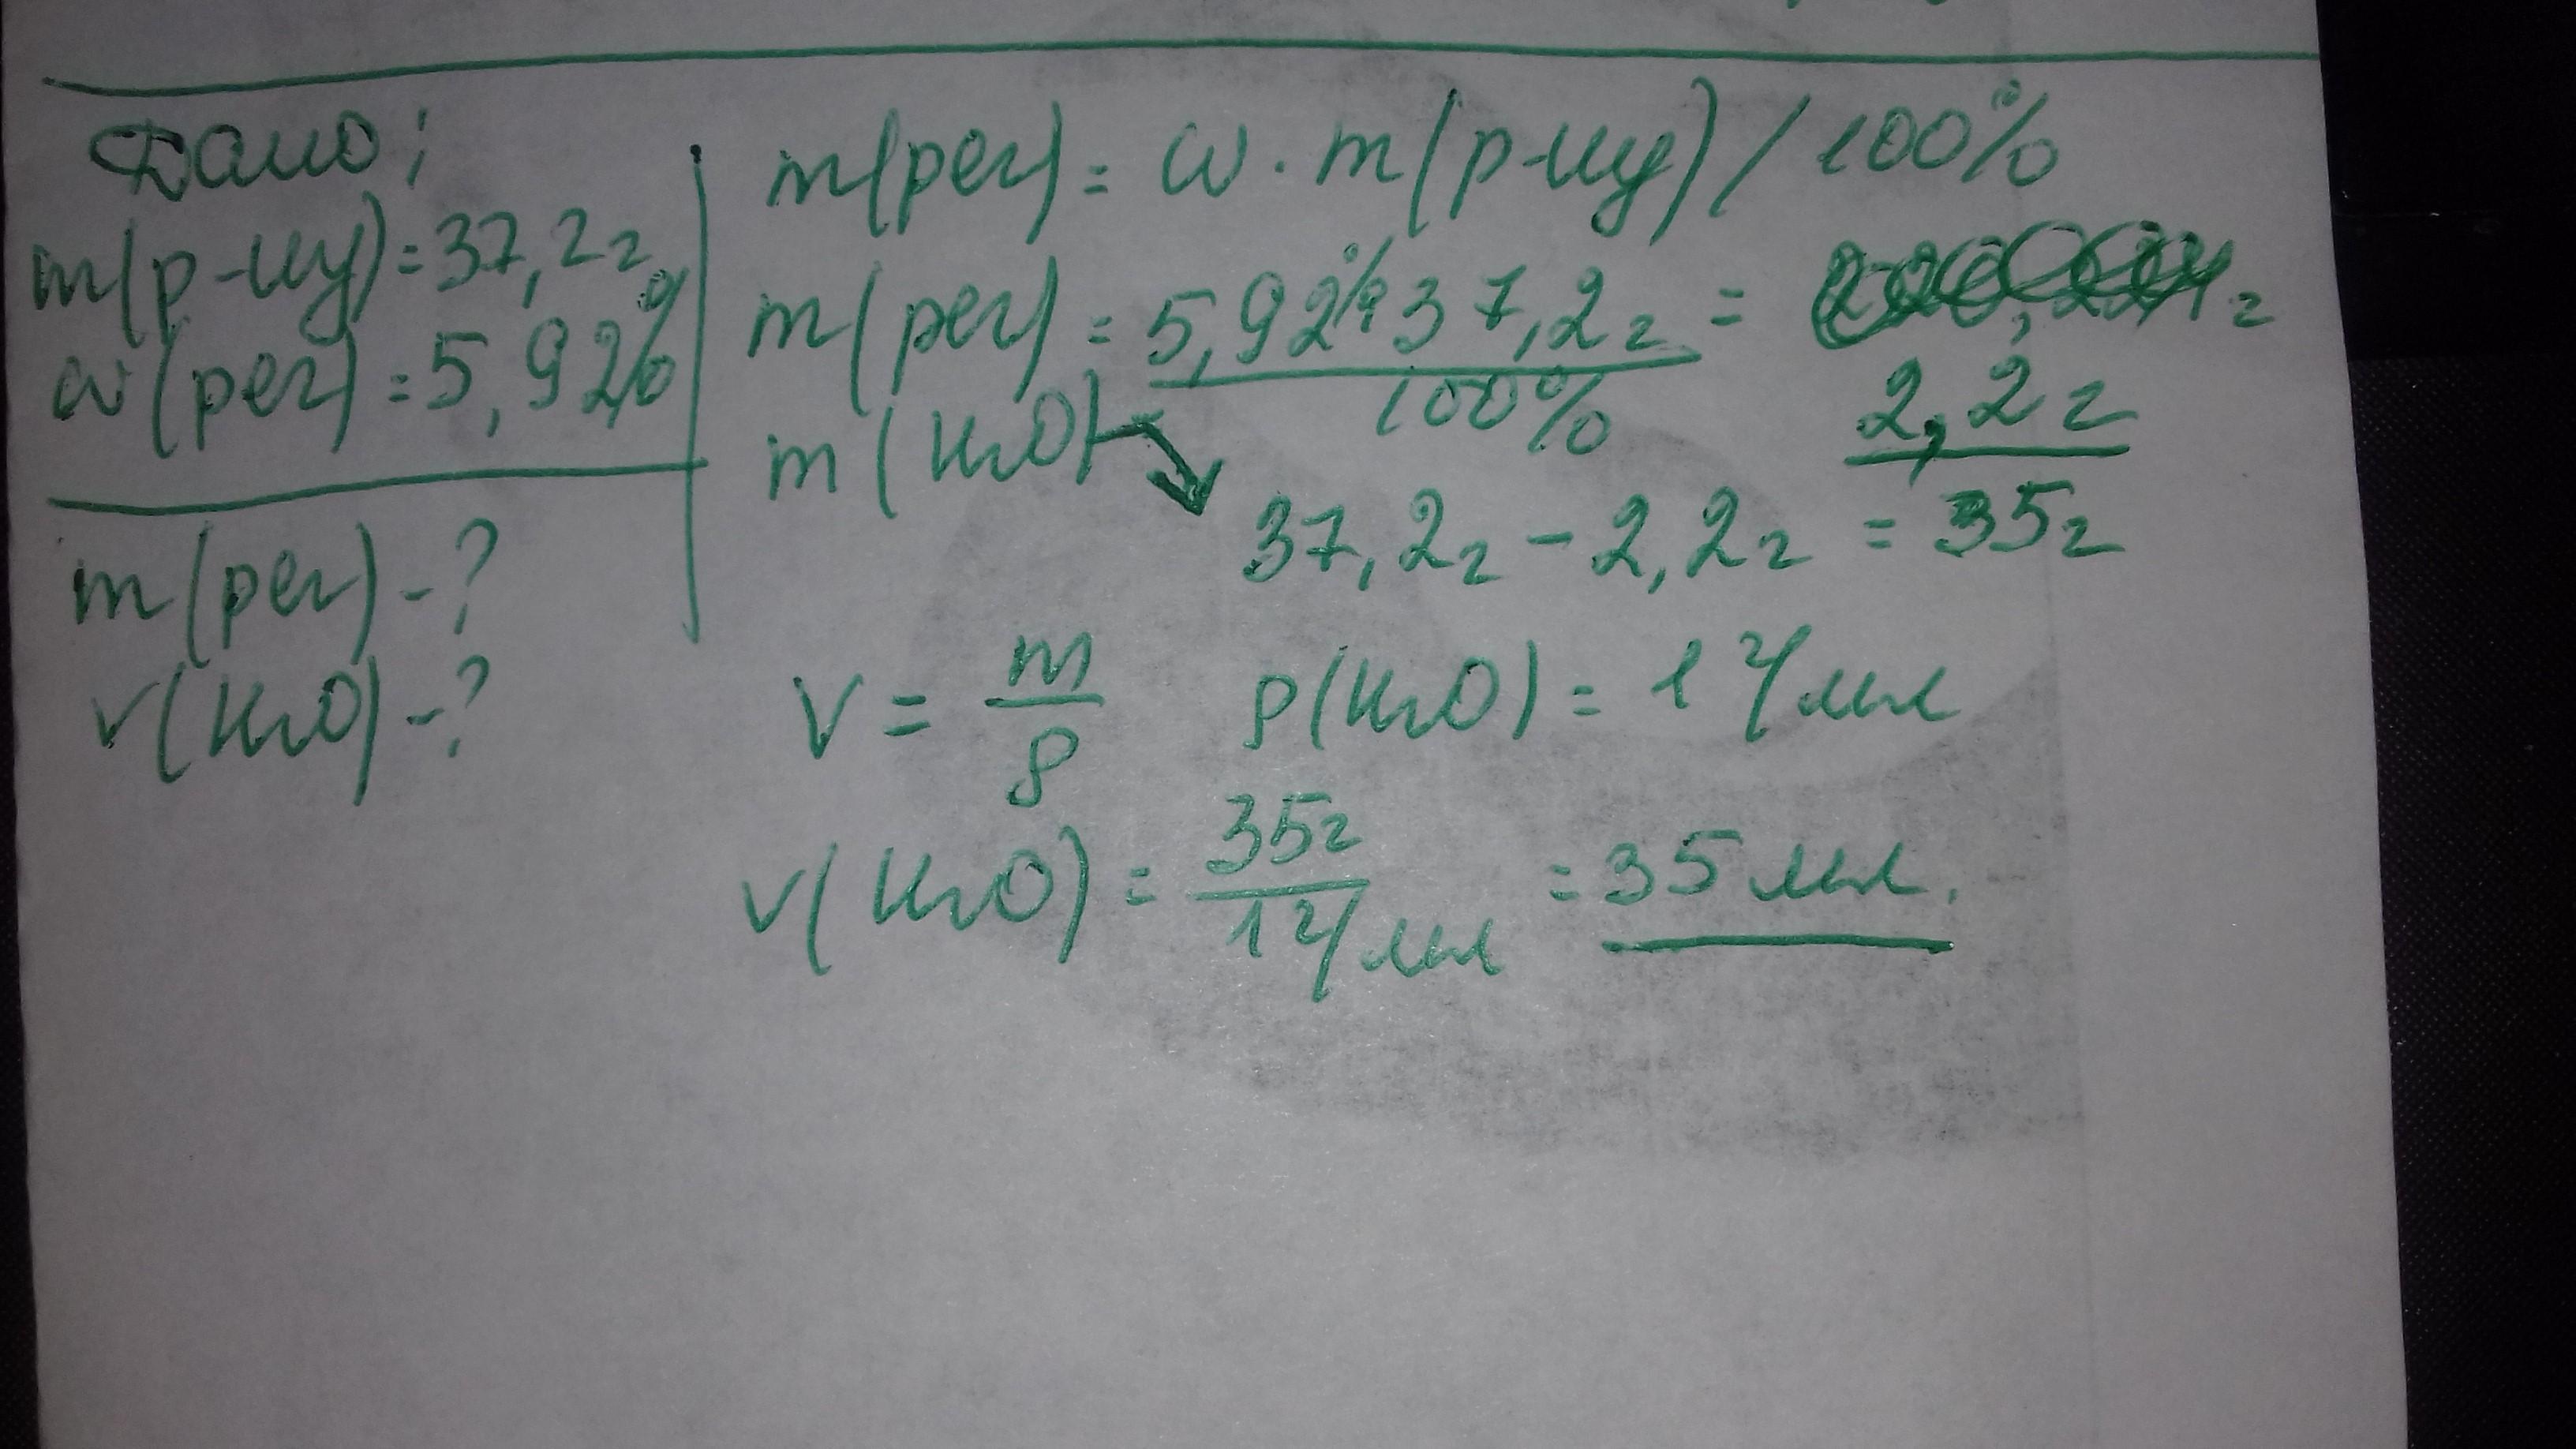 Дано:
m(р-ну)=37,2г
w(реч)=5,92%
m(реч)-?
v(H2O)-?
m(реч)= w·m(р-ну)/100%
m(реч)= 5,92%*37,2г =
100%
2,2г
m(H2O)
37,2г-2,2г = 35г
V = m
ρ
ρ(H2O)= 1 г/мл
v(H2O) = 35г = 35 мл.
1 г/мл